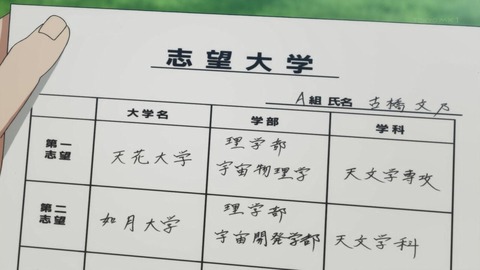 志望大学
A組 氏名 古橋文乃
大学名 学部 学科
第一志望 天花大学 理学部 宇宙物理学 天文学専攻
第二志望 如月大学 理学部 宇宙開発学部 天文学科